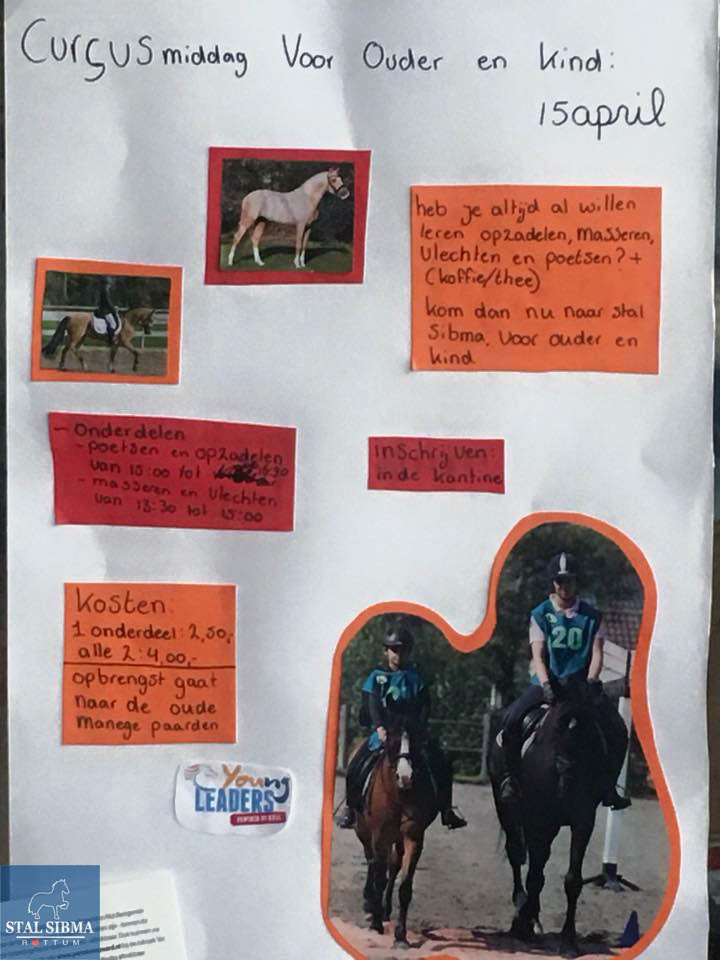 Cursusmiddag Voor Ouder en kind:
15 april
heb je altijd al willen
leren opzadelen, masseren,
vlechten en poetsen? +
(koffie/thee)
kom dan nu naar stal
Sibma. Voor ouder en
kind
- Onderdelen
- poetsen en opzadelen
van 15:00 tot
- masseren en vlechten
van 13:30 tot 15:00
inschrijven:
in de kantine
Kosten:
1 onderdeel: 2,50,-
alle 2: 4,00,-
opbrengst gaat
naar de oude
manege paarden
Young
LEADERS
POWERED BY
20
STAL SIBMA
ROTTUM